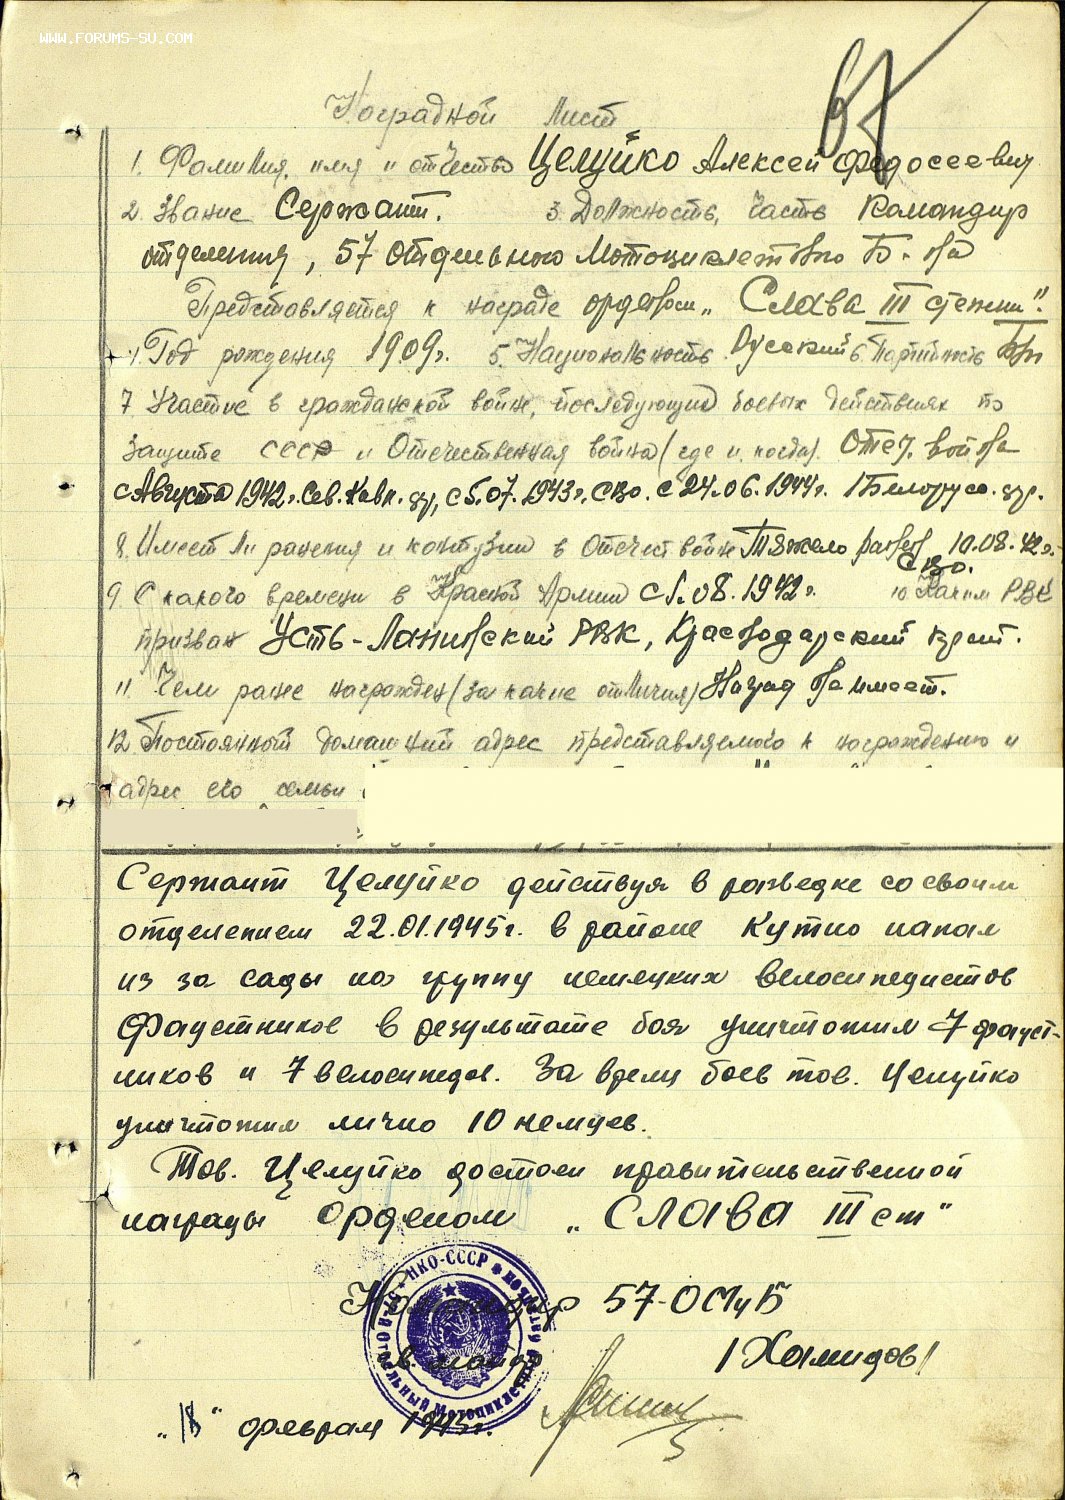 WWW.FORUMS-SU.COM
67
Наградной Лист
1. Фамилия, имя и отчество Целуйко Алексей Федосеевич
2. Звание Сержант. 3. Должность, часть Командир
отделения, 57 отдельного Мотоциклетного Б-на
Представляется к награде орденом „Слава III степени".
4. Год рождения 1909г. 5. Национальность Русский 6. Партийность Б/п
7 Участие в гражданской войне, последующих боевых действиях по
защите СССР и Отечественная война (где и когда). Отеч. война
с Августа 1942г. Сев. Кавк. фр, с 5.07.1943г. СЗФ. с 24.06.1944г. 1 Белорусс. фр.
8. Имеет ли ранения и контузии в Отечест войне Тяжело ранен 10.08.42г.
9. С какого времени в Красной Армии с 1.08.1942г. 10 Каким РВК
призван Усть-Лабинский РВК, Краснодарский край.
11. Чем ранее награжден (за какие отличия) Наград не имеет.
12 Постоянный домашний адрес представляемого к награждению и
адрес его семьи
Сержант Целуйко действуя в разведке со своим
отделением 22.01.1945г. в районе Кутно напал
из за сады на группу немецких велосипедистов
Фаустников в результате боя уничтожил 7 фауст-
ников и 7 велосипедов. За время боев тов. Целуйко
уничтожил лично 10 немцев.
Тов. Целуйко достоен правительственной
награды Орденом „СЛАВА III ст"
Командир 57-ОМцБ
гв. майор /Хамидов/
НКО-СССР
„18" февраля 1945г.